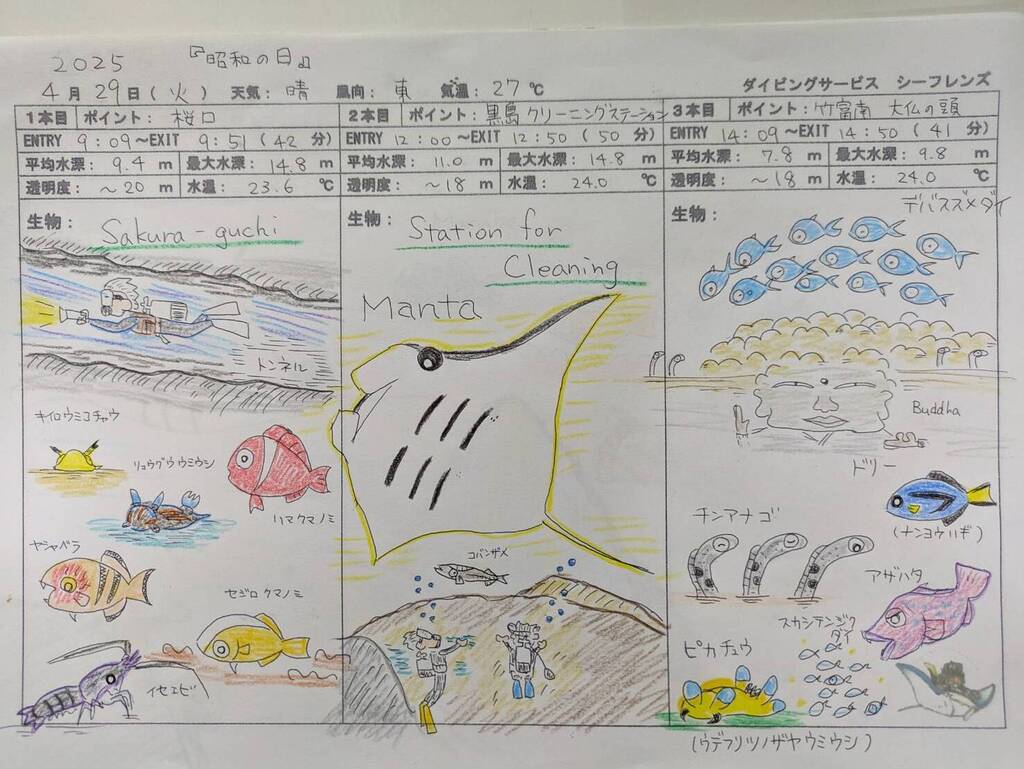 2025 『昭和の日』
4月29日(火) 天気: 晴 風向: 東 気温: 27℃ ダイビングサービス シーフレンズ
1本目 ポイント: 桜口
ENTRY 9:09~EXIT 9:51(42分)
平均水深: 9.4 m 最大水深: 14.8 m
透明度: ~20 m 水温: 23.6 ℃
生物:
Sakura-guchi
トンネル
キイロウミコチョウ
リュウグウウミウシ
ハマクマノミ
ヤシャベラ
セジロクマノミ
イセエビ
2本目 ポイント: 黒島クリーニングステーション
ENTRY 12:00~EXIT 12:50(50分)
平均水深: 11.0 m 最大水深: 14.8 m
透明度: ~18 m 水温: 24.0 ℃
生物:
Station for
Cleaning
Manta
コバンザメ
3本目 ポイント: 竹富南 大仏の頭
ENTRY 14:09~EXIT 14:50(41分)
平均水深: 7.8 m 最大水深: 9.8 m
透明度: ~18 m 水温: 24.0 ℃
生物:
デバスズメダイ
Buddha
ドリー
(ナンヨウハギ)
チンアナゴ
アザハタ
スカシテンジク
ダイ
ピカチュウ
(ウデフリツノザヤウミウシ)